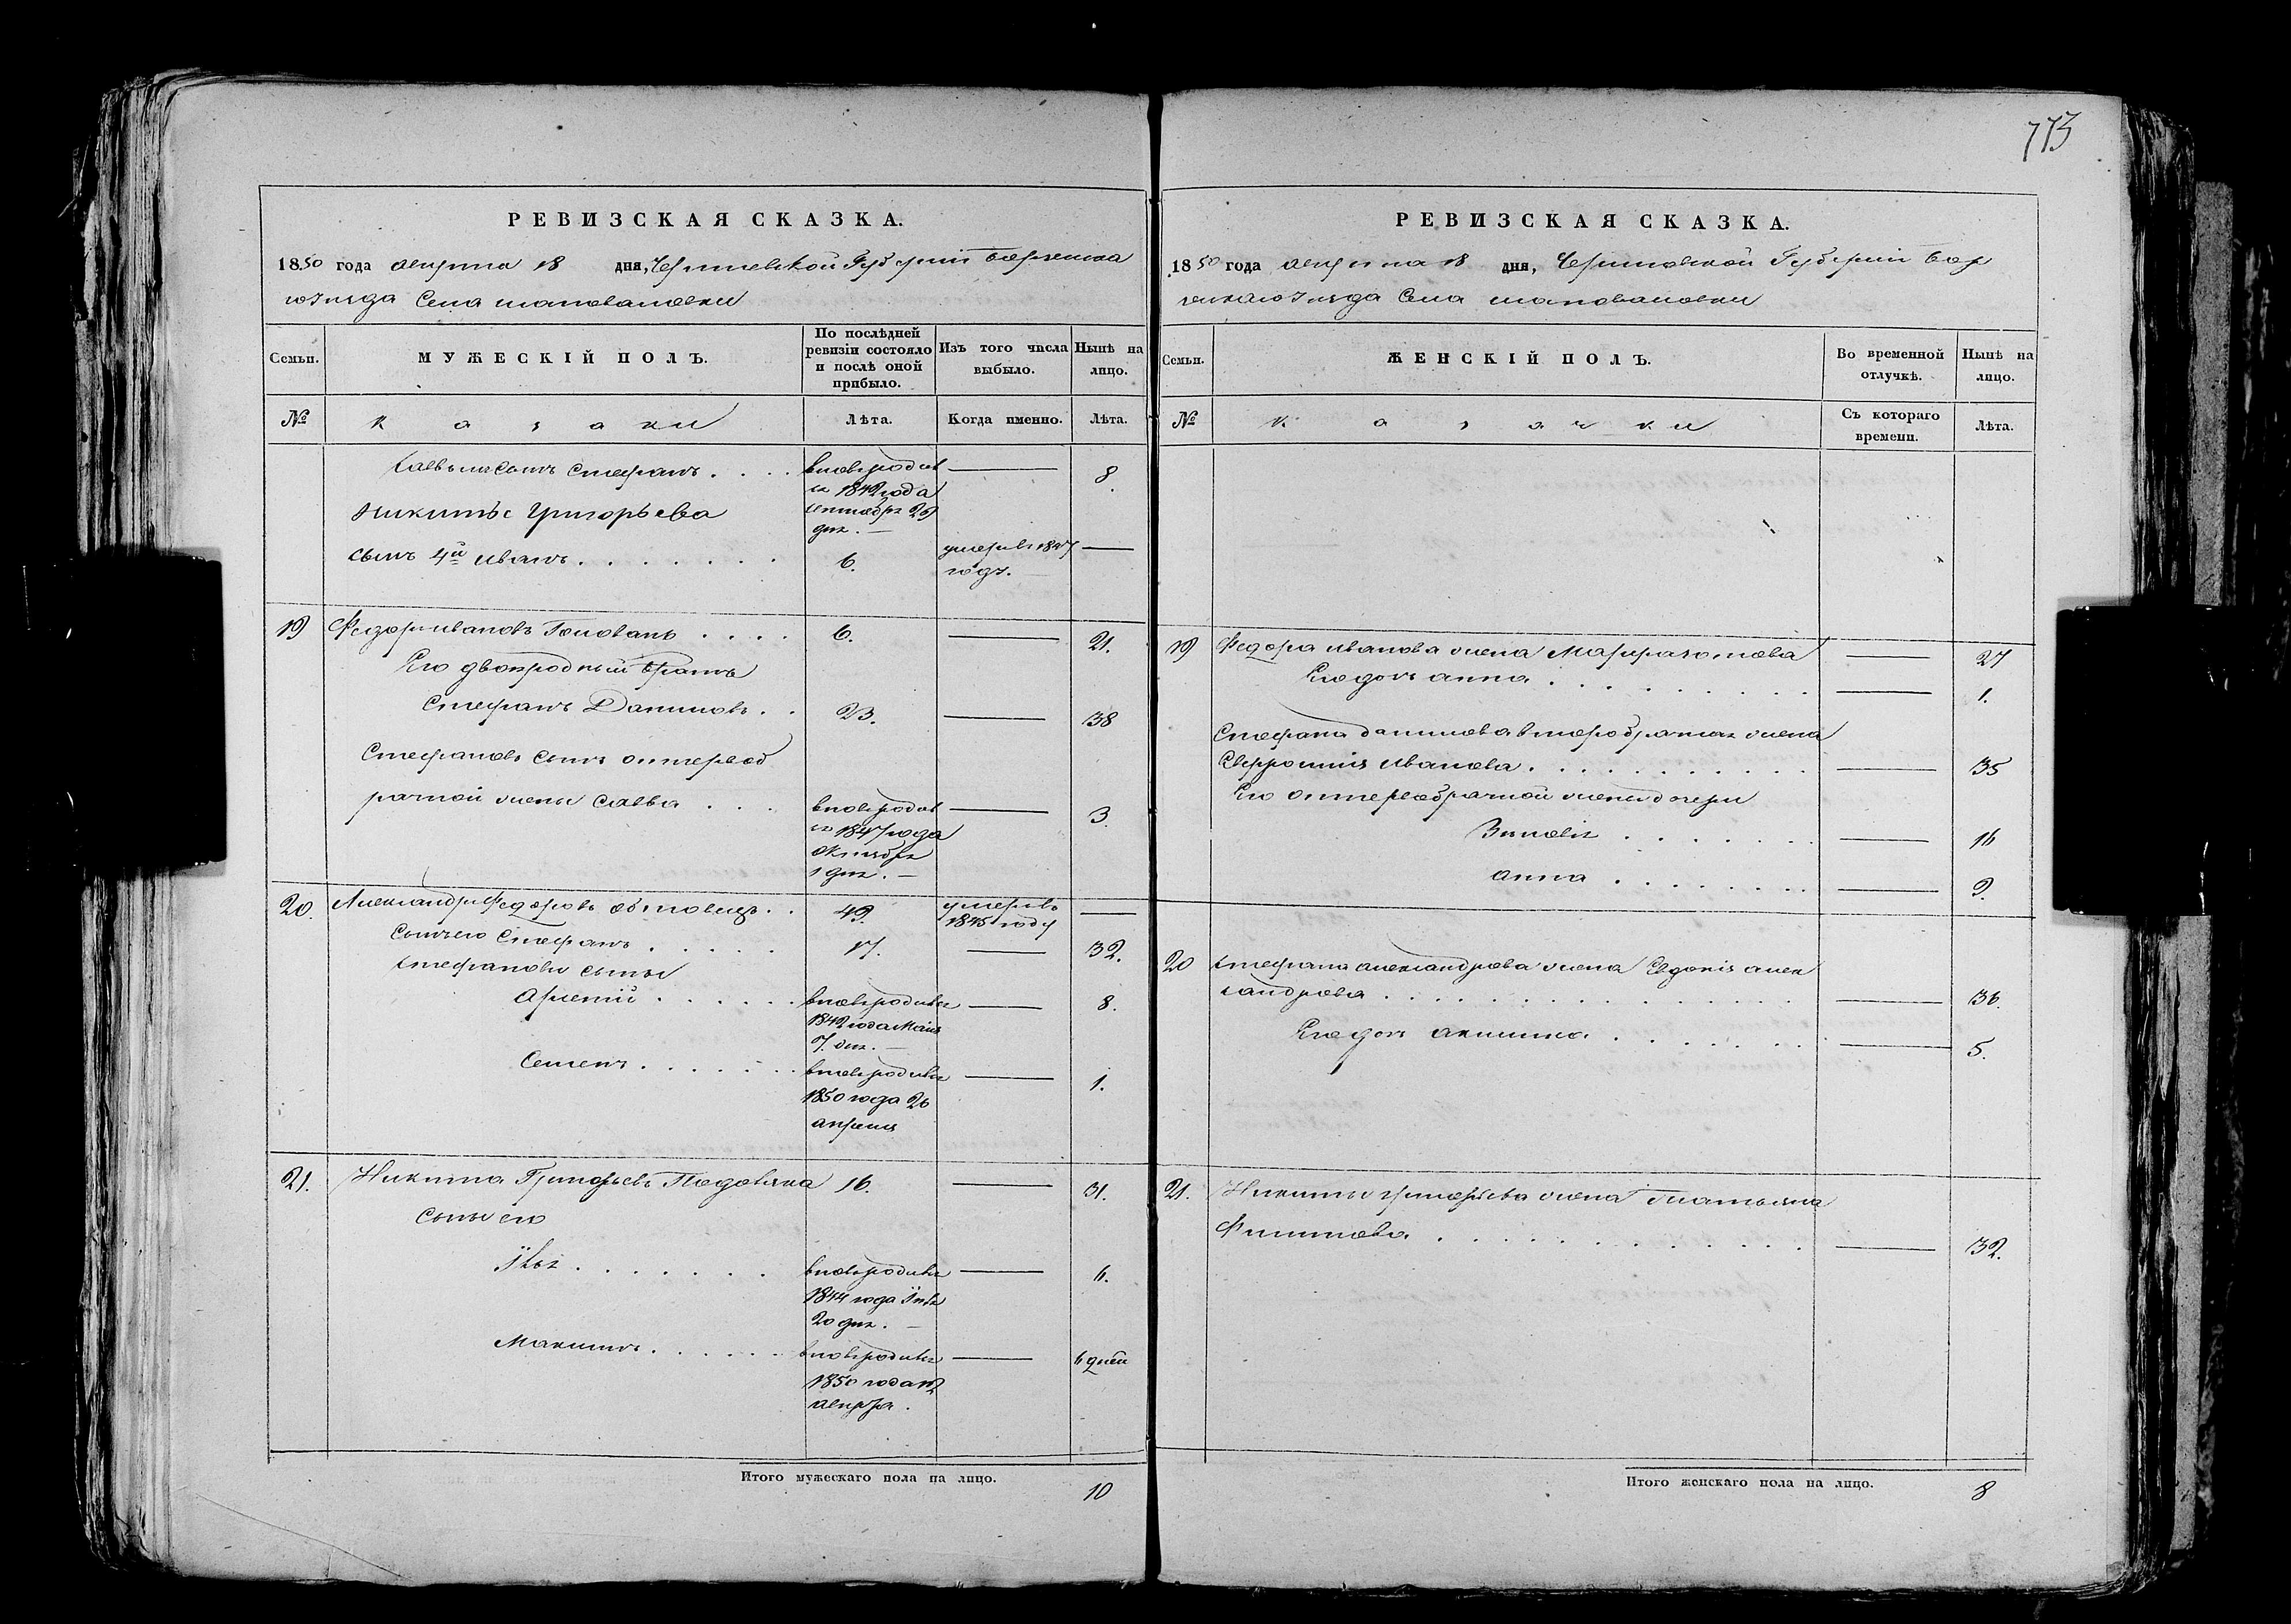 773
РЕВИЗСКАЯ СКАЗКА.
1850 года августа 18 дня, Черниговской Губерніи Борзенска
го уезда Села шаповаловки
Семьи.
МУЖЕСКІЙ ПОЛЪ.
По послѣдней ревизіи состояло и послѣ оной прибыло.
Изъ того числа выбыло.
Нынѣ на лицо.
№
казаки
Лѣта.
Когда именно.
Лѣта.
Савы сынъ Стефанъ . . . 8.
1842 года
сентября 29
дня. —
Никиты Григорьева
сынъ 4й Иванъ . . . . . . 6. умеръ 1847 —
году.
19 Федоръ Ивановъ Голованъ . . . . 6. — 21.
Его двоюродный братъ
Стефанъ Даниловъ . . 23. — 38
Стефановъ сынъ отъ первоб
рачной жены Савва . . . вновь родив — 3.
ся 1847 года
октября
1 дня. —
20. Александръ Федоровъ . . 49. умеръ —
1845 году
Сынъ его Стефанъ . . . . . 17. — 32.
Стефановы сыны
Арсеній . . . . . . вновь родився — 8.
1842 года Маія
7. дня. —
Семенъ . . . . . . . вновь родився — 1.
1850 года 26
апреля
21. Никита Григорьевъ Подовяка 16. — 31.
Сыны его
. . . . . . . вновь родився — 6.
1844 года
20 дня. —
Максимъ . . . . . . вновь родився — 6 дней
1850 года 12
августа.
Итого мужескаго пола на лицо. 10
РЕВИЗСКАЯ СКАЗКА.
1850 года августа 18 дня, Черниговской Губерніи Бор
зенскаго уезда Села шаповаловки
Семьи.
ЖЕНСКІЙ ПОЛЪ.
Во временной отлучкѣ.
Нынѣ на лицо.
№
казачки
Съ котораго времени.
Лѣта.
19 Федора Иванова жена Марфа — 27
Его дочь анна . . . . . . . . . — 1.
Стефана данилова второбрачная жена
Евфросинія Иванова . . . . . . . . . . — 35
Его отъ первобрачной жены дочери
Зиновія . . . . . . . — 16
анна . . . . . . . . — 9.
20 Стефана александрова жена Евдокія алек
сандрова . . . . . . . . . . . . . . . — 36.
Его дочь акилина . . . . . . . . — 5.
21. Никиты григорьева жена татьяна
Филипова . . . . . . . . . . . . — 32.
Итого женскаго пола на лицо. 8